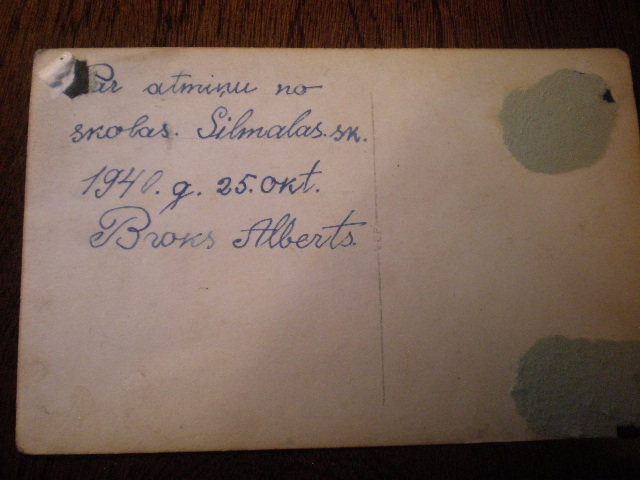 Par atmiņu no
skolas. Silmalas.sk.
1940. g. 25. okt.
Broks Alberts.